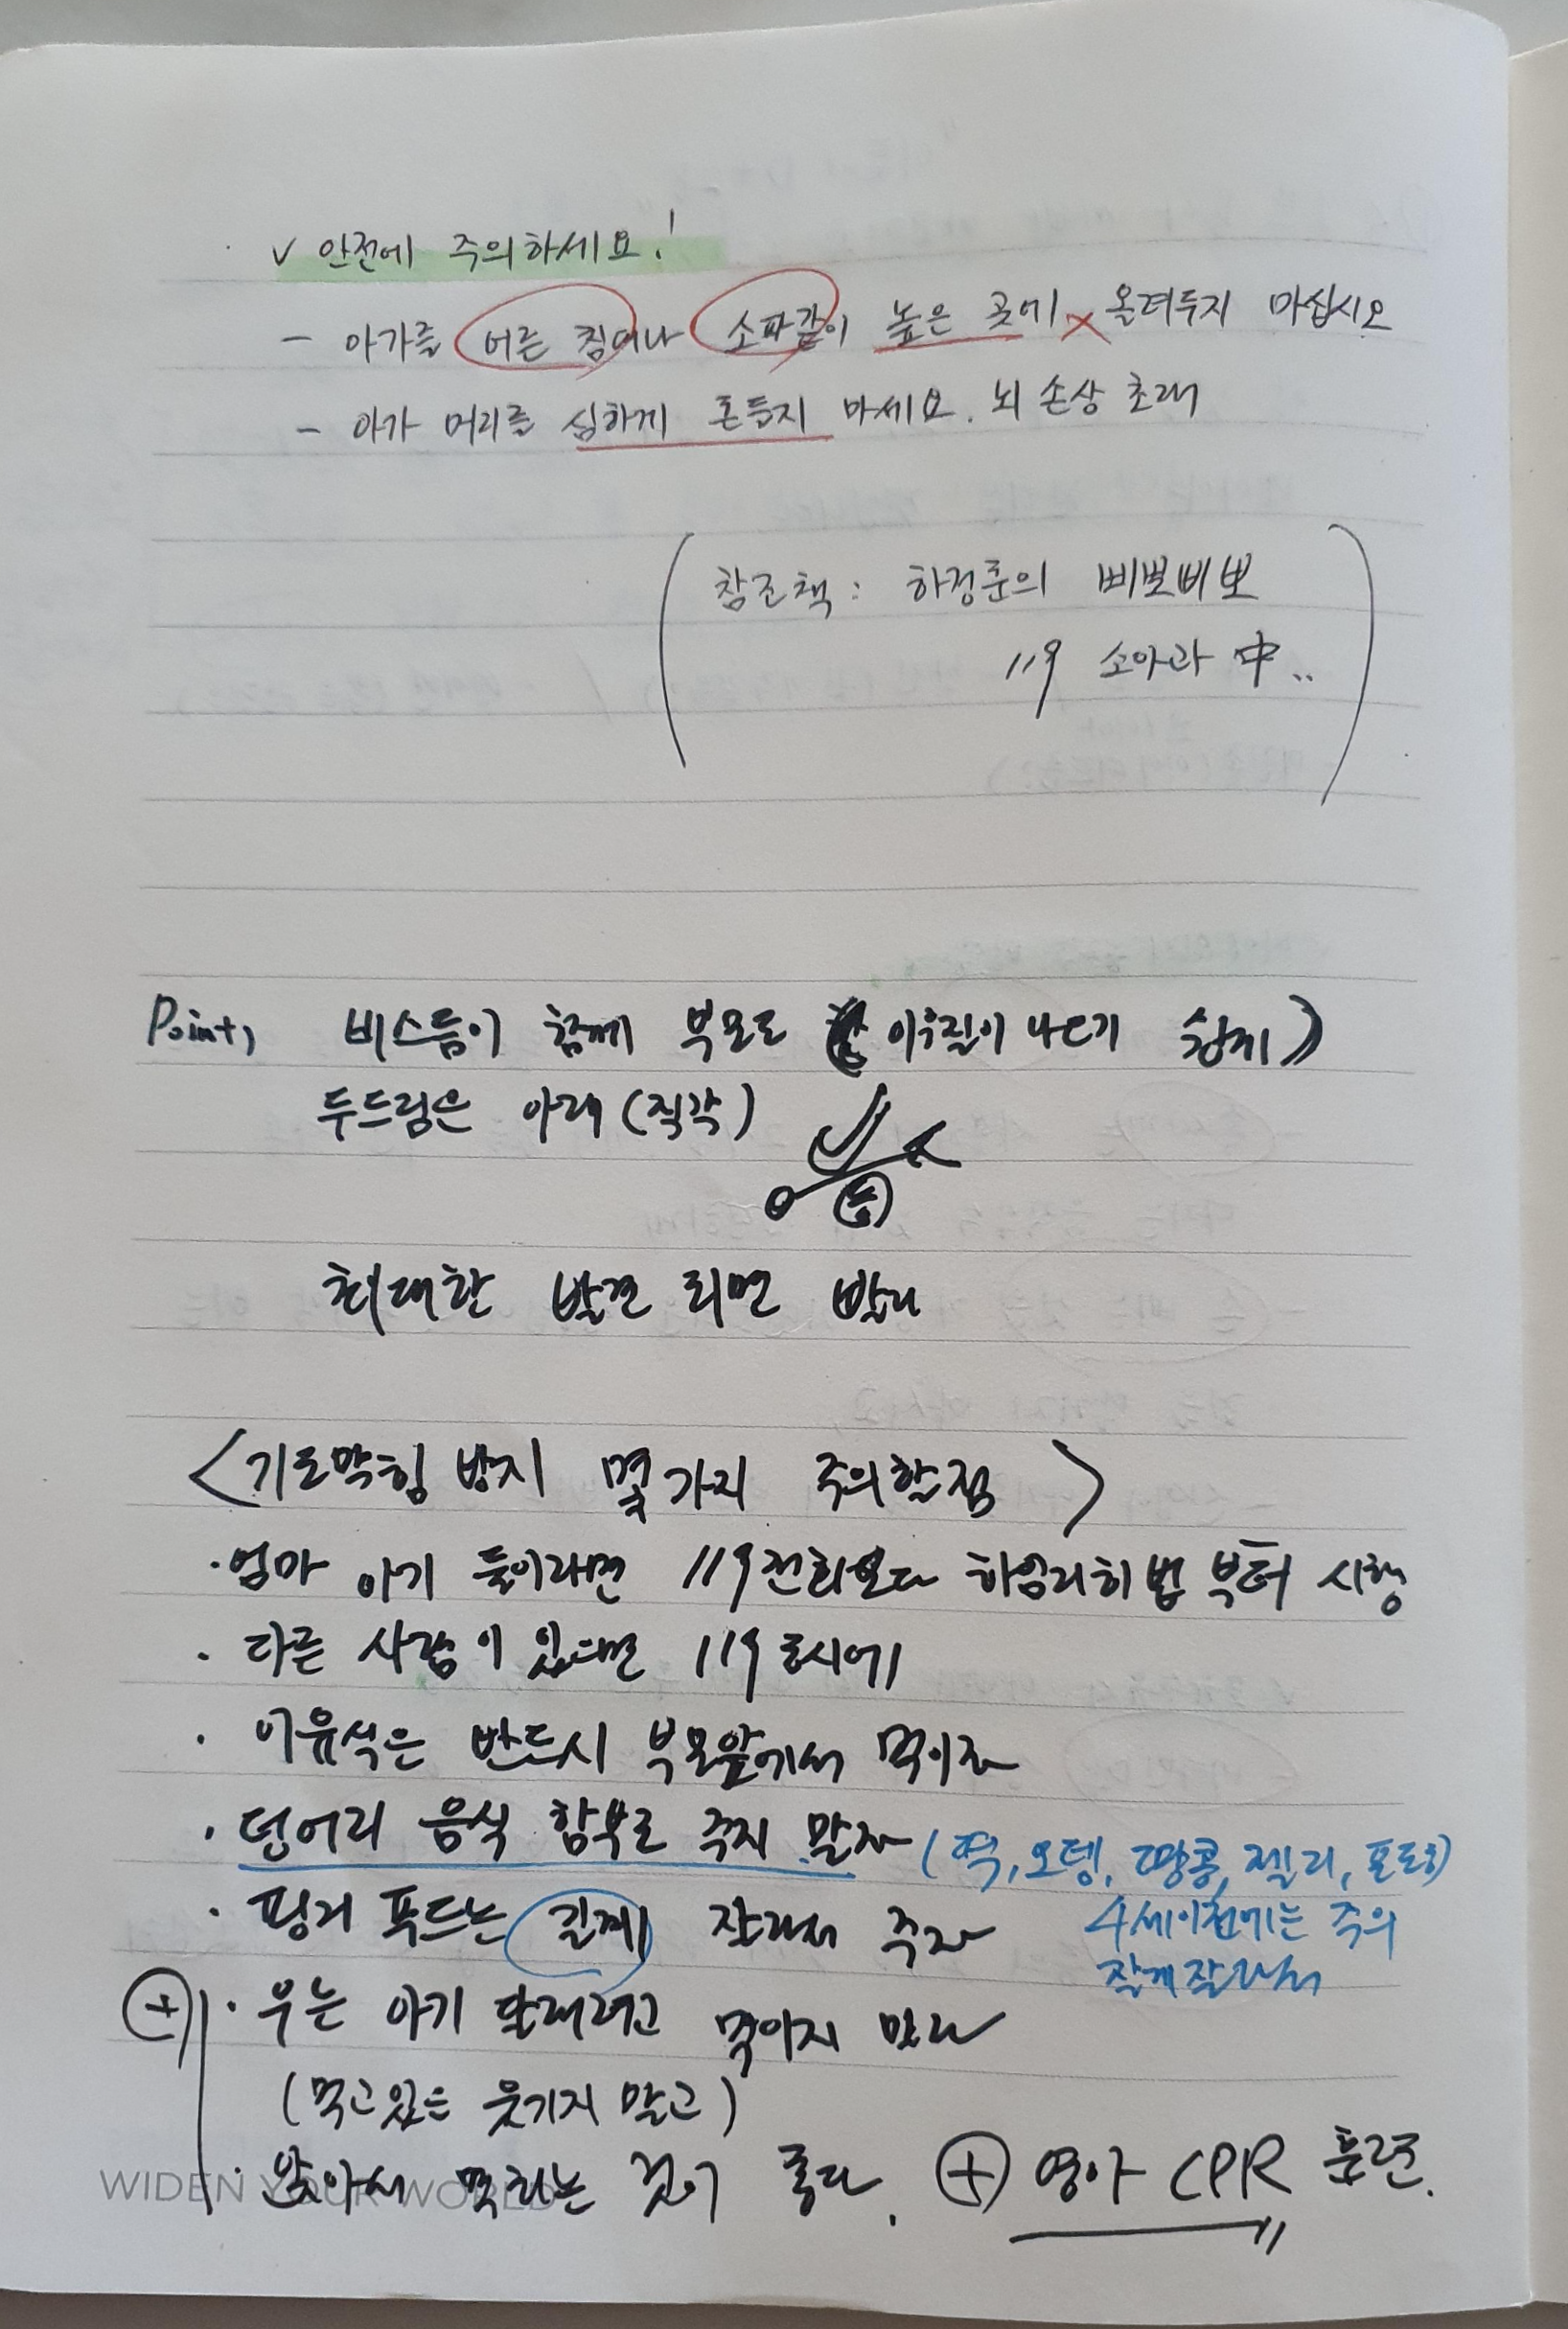 ✓ 안전에 주의하세요!
- 아가를 어른 침대나 소파같이 높은 곳에 × 올려두지 마십시오
- 아가 머리를 심하게 흔들지 마세요. 뇌 손상 초래
(참조책 : 하정훈의 삐뽀삐뽀
119 소아과 中..)
Point, 비스듬이 함께 부모도 이우질이 나오기 쉽게)
두드림은 아래 (직각)
최대한 발견 되면 빨리
<기도막힘 방지 몇가지 주의할점>
· 엄마 아기 둘이라면 119전화보다 하임리히법 부터 시행
· 다른 사람이 있다면 119 동시에
· 이유식은 반드시 부모앞에서 먹이자
· 덩어리 음식 함부로 주지 말자 (떡, 오뎅, 땅콩, 젤리, 포도)
· 핑거 푸드는 길게 잘라서 주자 4세이전에는 주의
잘게잘라서
⊕ · 우는 아기 달래려고 먹이지 말라
(먹고있는 웃기지 말고)
· 앉아서 먹이는 것이 좋다. ⊕ 영아 CPR 훈련.
WIDEN YOUR WORLD